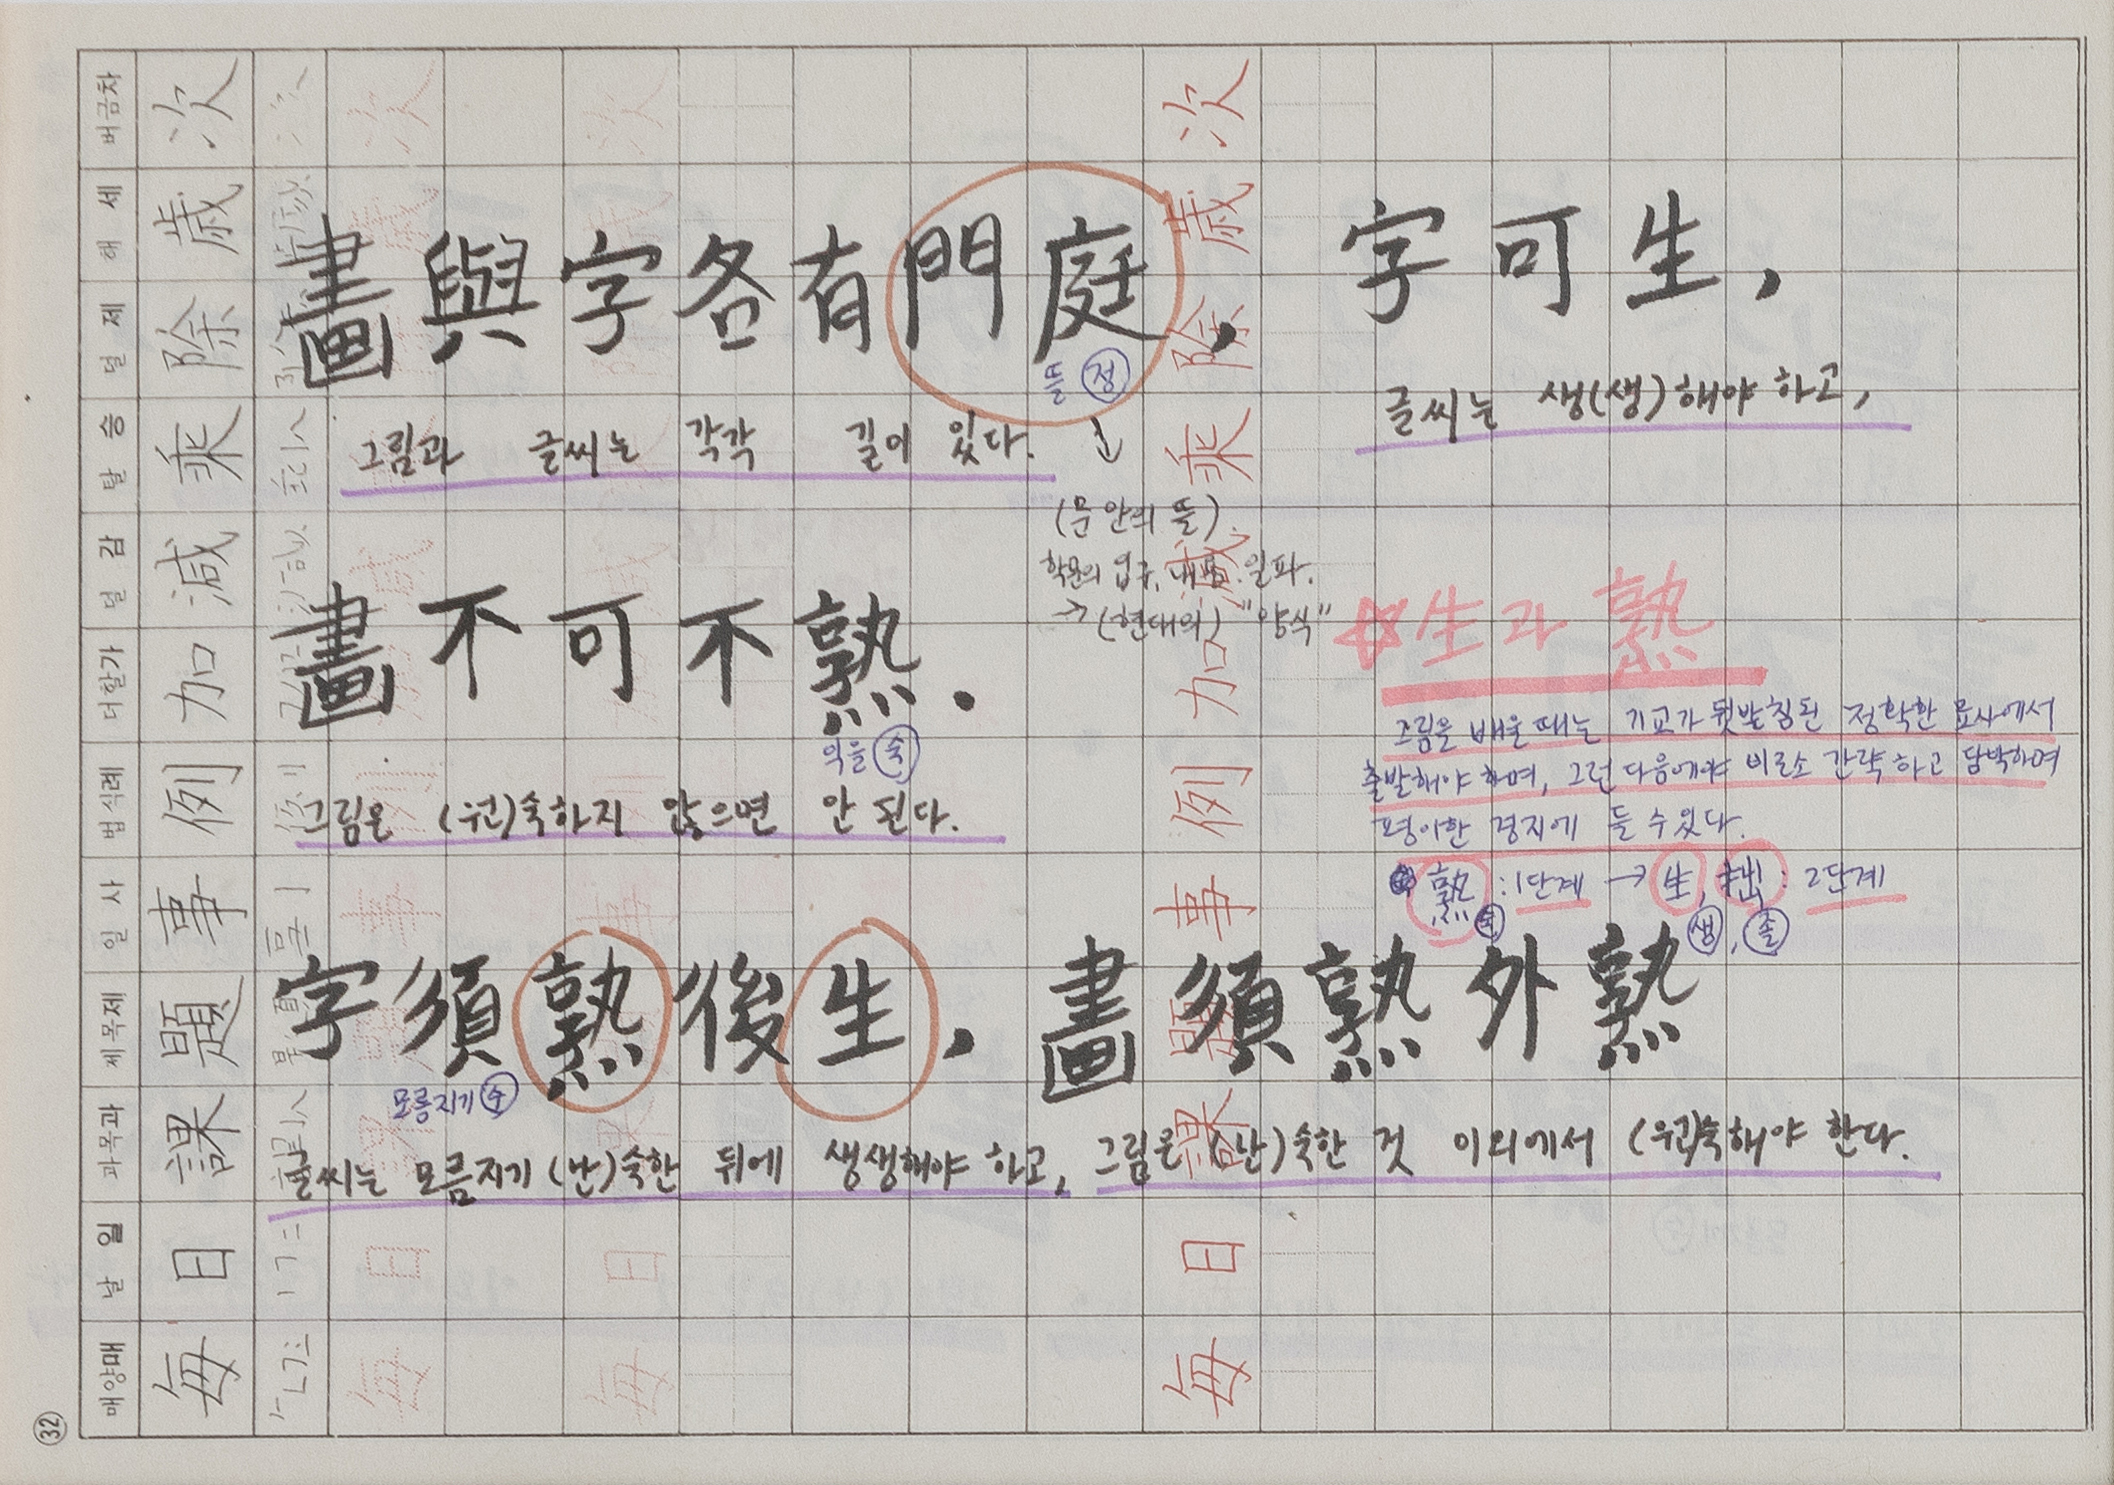 畫與字各有門庭, 字可生,
뜰 정
그림과 글씨는 각각 길이 있다. ↓
글씨는 생(생)해야 하고,
(문 안의 뜰)
학문의 입구, 일파.
→ (현대의) "양식"
畫不可不熟.
익을 숙
그림은 (원)숙하지 않으면 안 된다.
☆生과 熟
그림을 배울 때는 기교가 뒷받침된 정확한 묘사에서
출발해야 하며, 그런 다음에야 비로소 간략하고 담박하며
평이한 경지에 들 수 있다.
熟 : 1단계 → 生, 拙 : 2단계
숙 생, 졸
字須熟後生, 畫須熟外熟
모름지기 수
글씨는 모름지기 (난)숙한 뒤에 생생해야 하고, 그림은 (난)숙한 것 이외에서 (원)숙해야 한다.
每日課題事例加減乘除歲次
매양매 날일 과목과 쩨목제 일사 법식례 더할가 덜감 탈승 덜제 해세 버금차
每日課題事例加減乘除歲次
32